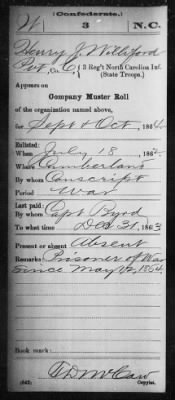 (Confederate.)
W 3 N.C.
Henry J. Williford
Pvt, Co. C, 3 Reg't North Carolina Inf.
(State Troops.)
Appears on
Company Muster Roll
of the organization named above,
for Sept & Oct, 1864.
Enlisted:
When July 18, 186
Where Cumberland
By whom Conscript
Period War
Last paid:
By whom Capt Byrd
To what time Dec 31, 1863
Present or absent Absent
Remarks: Prisoner of War
since May 12, 1864.
Book mark:
(642)
Copyist.